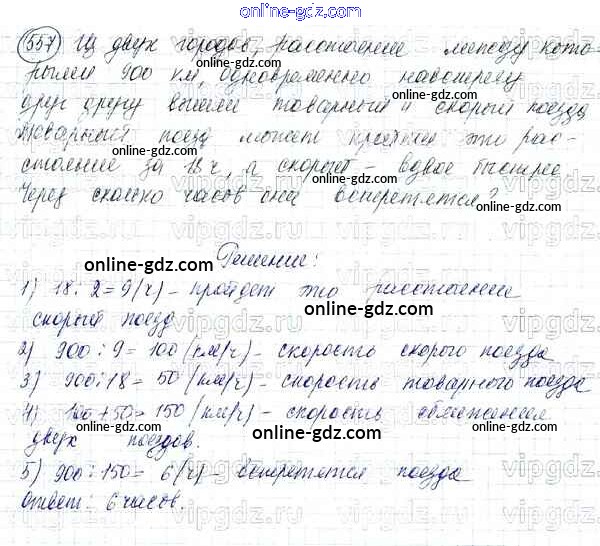 online-gdz.com
557 Из двух городов, расстояние между кото-
рыми 900 км, одновременно навстречу
друг другу вышли товарный и скорый поезда
Товарный поезд может пройти это рас-
стояние за 18 ч, а скорый – вдвое быстрее.
Через сколько часов они встретятся?
Решение:
1) 18 : 2 = 9 (ч) – пройдет это расстояние
скорый поезд
2) 900 : 9 = 100 (км/ч) – скорость скорого поезда
3) 900 : 18 = 50 (км/ч) – скорость товарного поезда
4) 100 + 50 = 150 (км/ч) – скорость сближения
двух поездов.
5) 900 : 150 = 6 (ч) – встретятся поезда
Ответ: 6 часов.
online-gdz.com
online-gdz.com
online-gdz.com
online-gdz.com
online-gdz.com
online-gdz.com
online-gdz.com
online-gdz.com